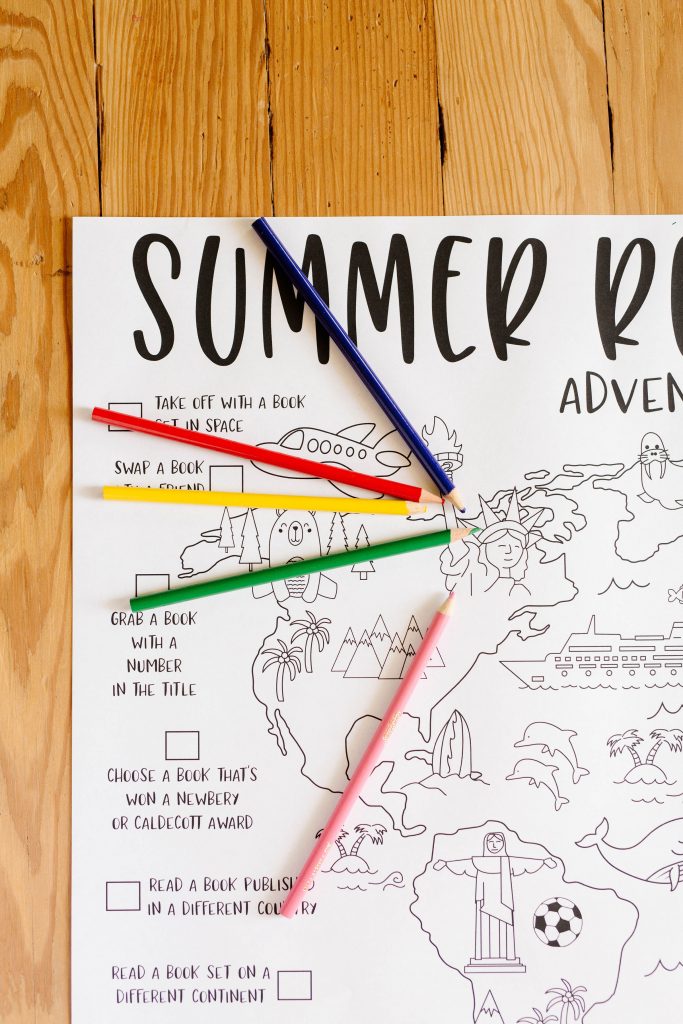 SUMMER R
ADVEN
TAKE OFF WITH A BOOK
SET IN SPACE
SWAP A BOOK
WITH A FRIEND
GRAB A BOOK
WITH A
NUMBER
IN THE TITLE
CHOOSE A BOOK THAT'S
WON A NEWBERY
OR CALDECOTT AWARD
READ A BOOK PUBLISHED
IN A DIFFERENT COUNTRY
READ A BOOK SET ON A
DIFFERENT CONTINENT